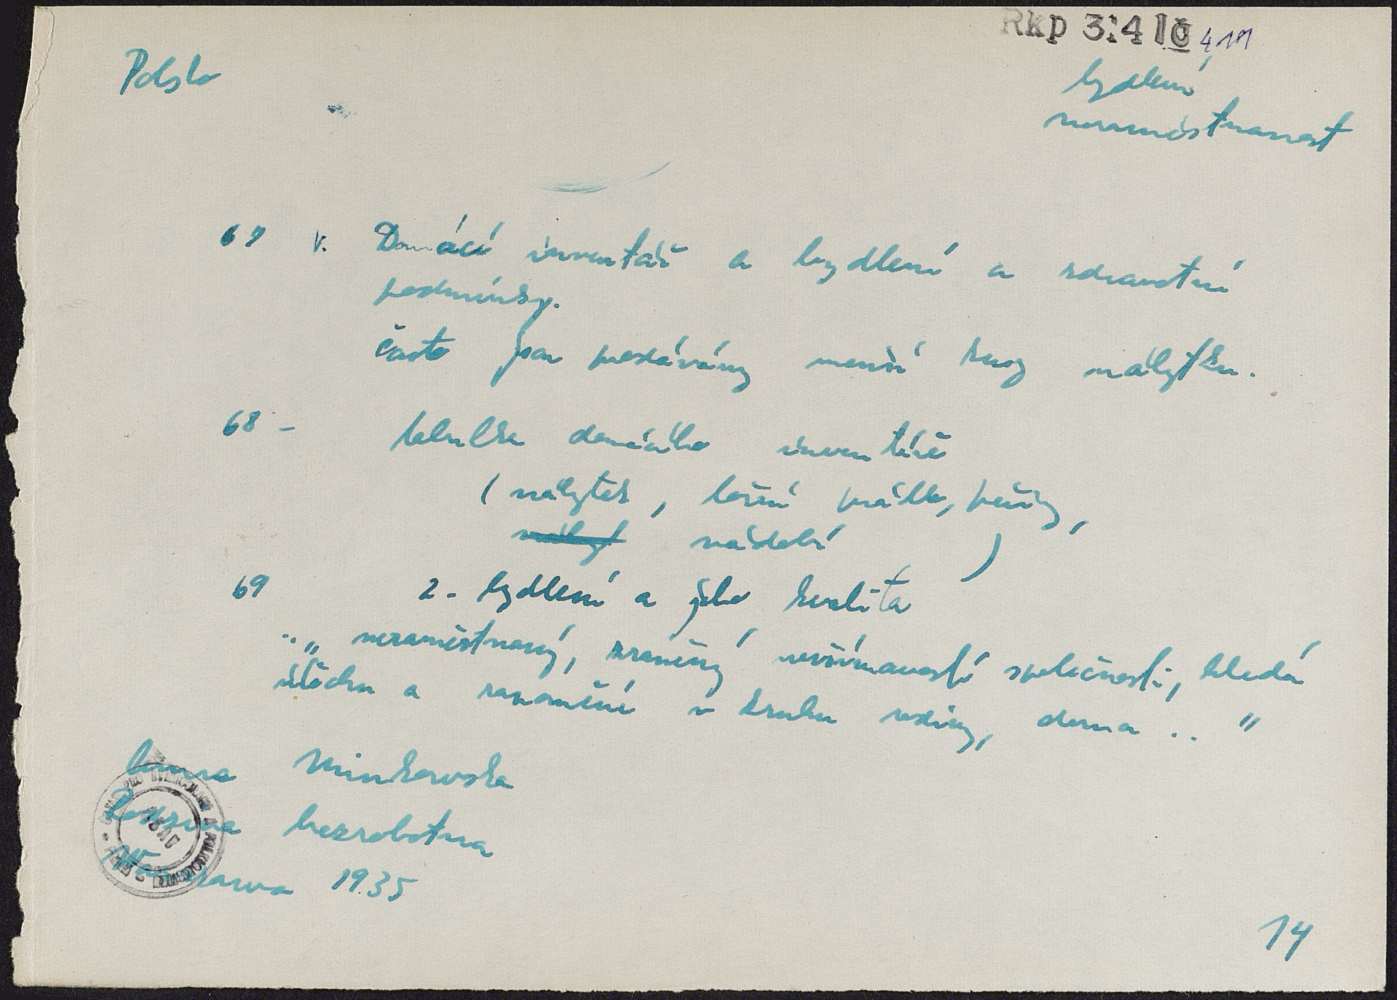 RKp 3:4 IČ 419
Polsko
bydlení
nezaměstnanost
67 V. Domácí inventář a bydlení a zdravotní
podmínky.
často jsou prodávány menší kusy nábytku.
68 - tabulka domácího inventáře
( nábytek, ložní prádlo, peřiny,
nádobí )
69 2. bydlení a jeho kvalita
.. „ nezaměstnaný, zraněný nevšímavostí společnosti, hledá
útěchu a zapomění v kruhu rodiny, doma .. "
Anna Minkowska
Rodzina bezrobotna
Warszawa 1935
14